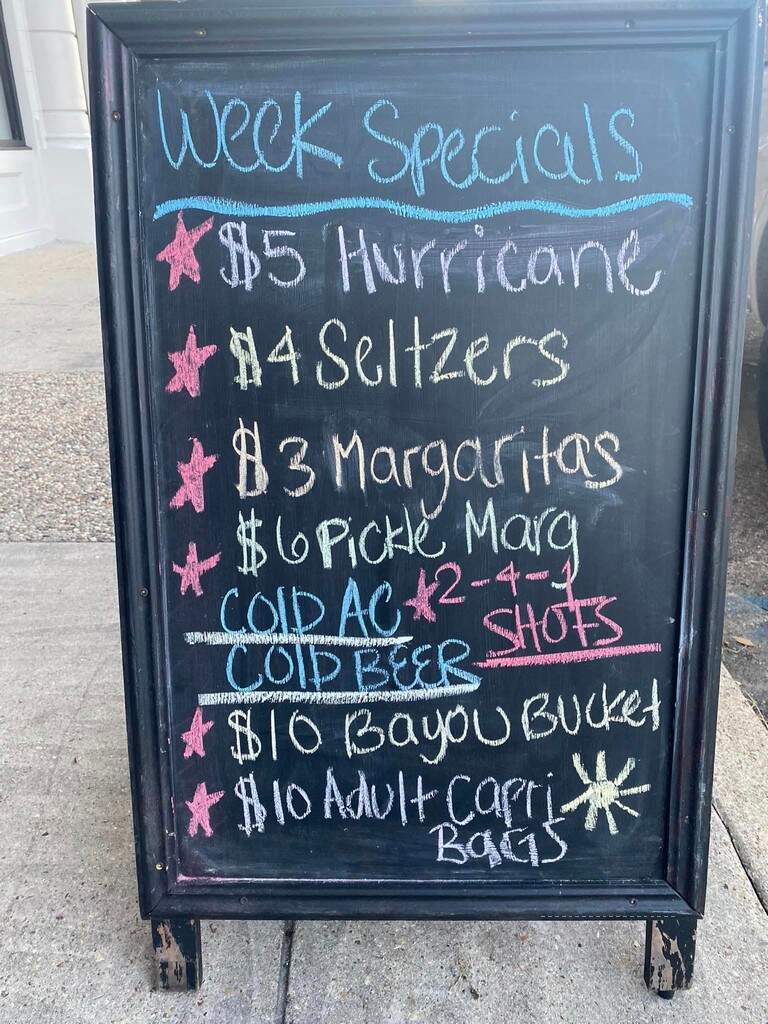 Week Specials
$5 Hurricane
$4 Seltzers
$3 Margaritas
$6 Pickle Marg
COLD AC
2-4-1
SHOTS
COLD BEER
$10 Bayou Bucket
$10 Adult Capri
BAGS